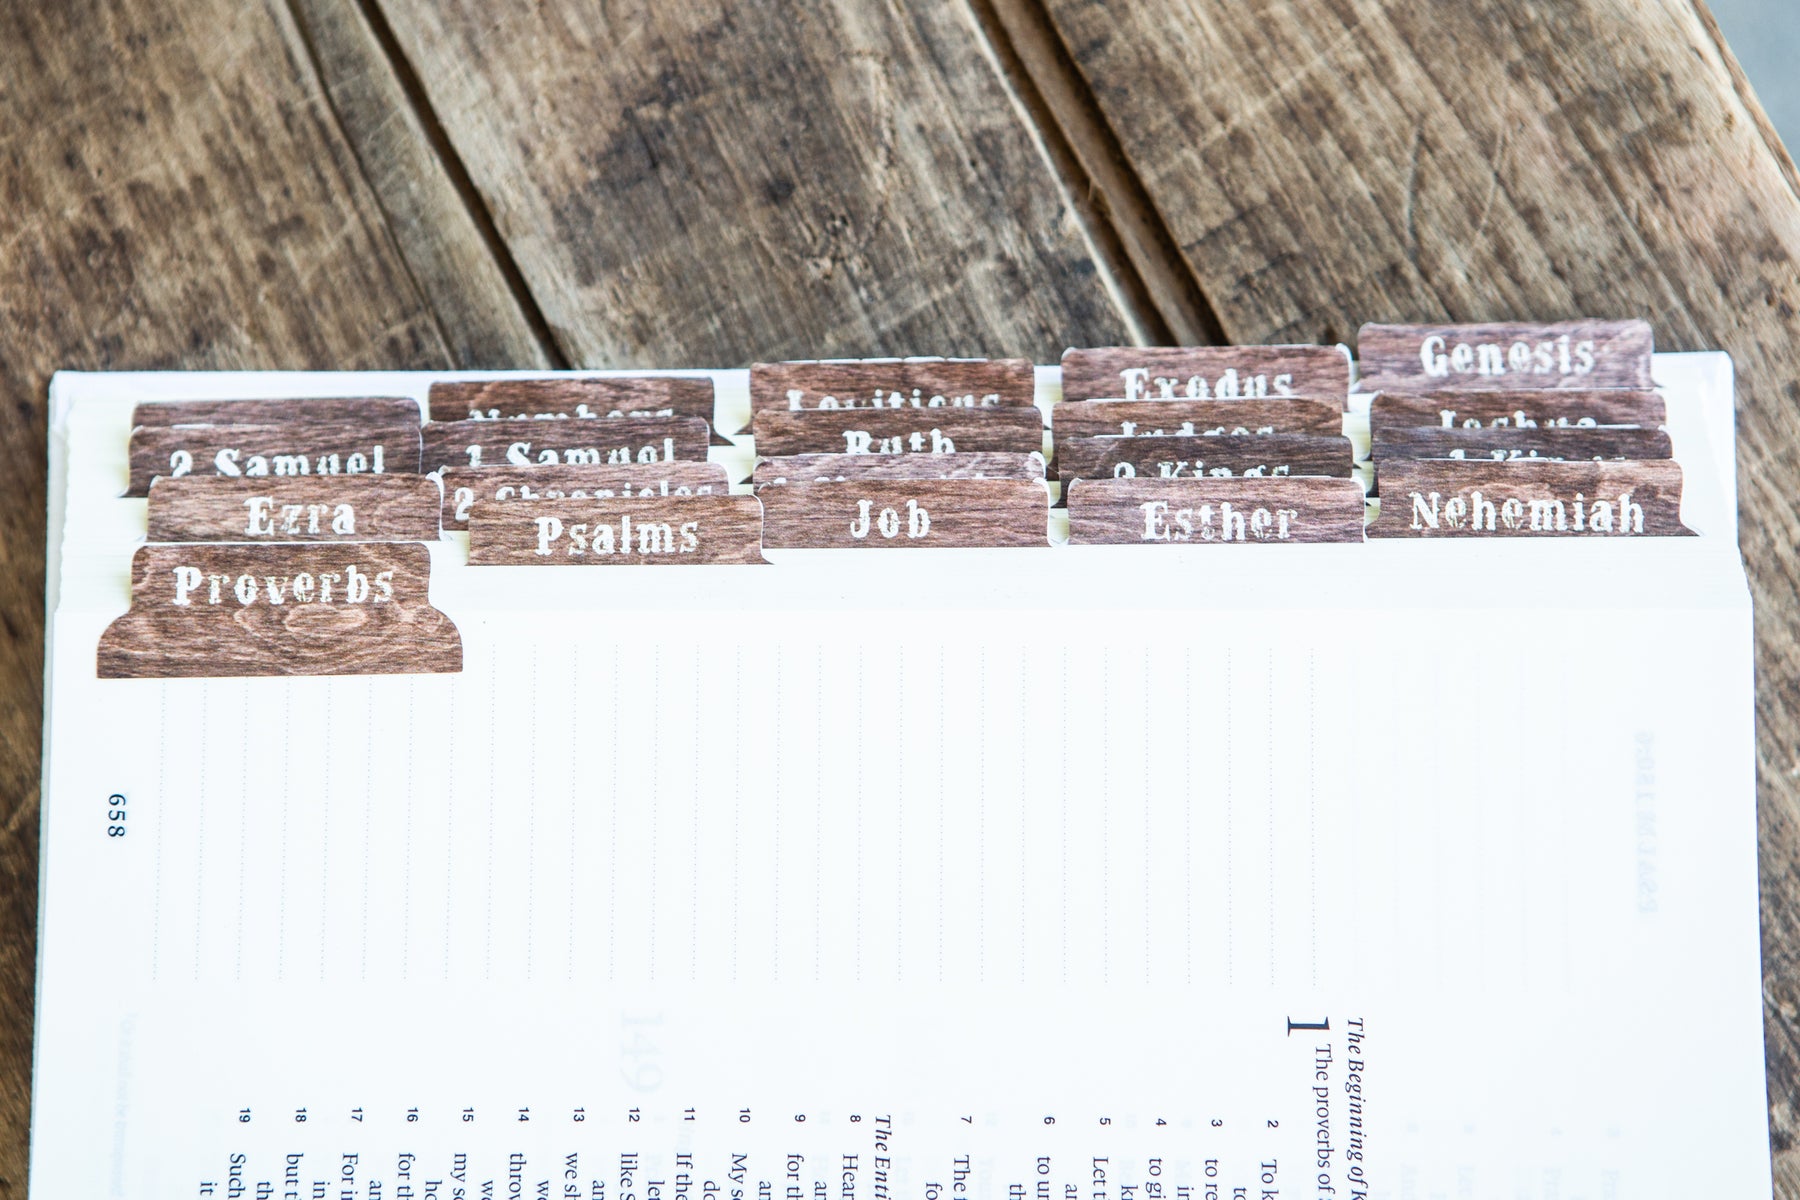 Genesis
Exodus
Leviticus
Numbers
Joshua
Judges
Ruth
1 Samuel
2 Samuel
1 Kings
2 Kings
2 Chronicles
Ezra
Nehemiah
Esther
Job
Psalms
Proverbs
658
PSALM 150:6
149
The Beginning of K
1 The proverbs of
2 To k
to
3 to re
4 to gi
in
5 Let t
6 to un
th
7 The f
fo
The Enti
8 Hear
9 for th
an
10 My so
do
11 If the
12 like S
an
13 we sh
we
14 throw
we
15 my so
ho
16 for th
an
17 For in
in
18 but t
th
19 Such
it